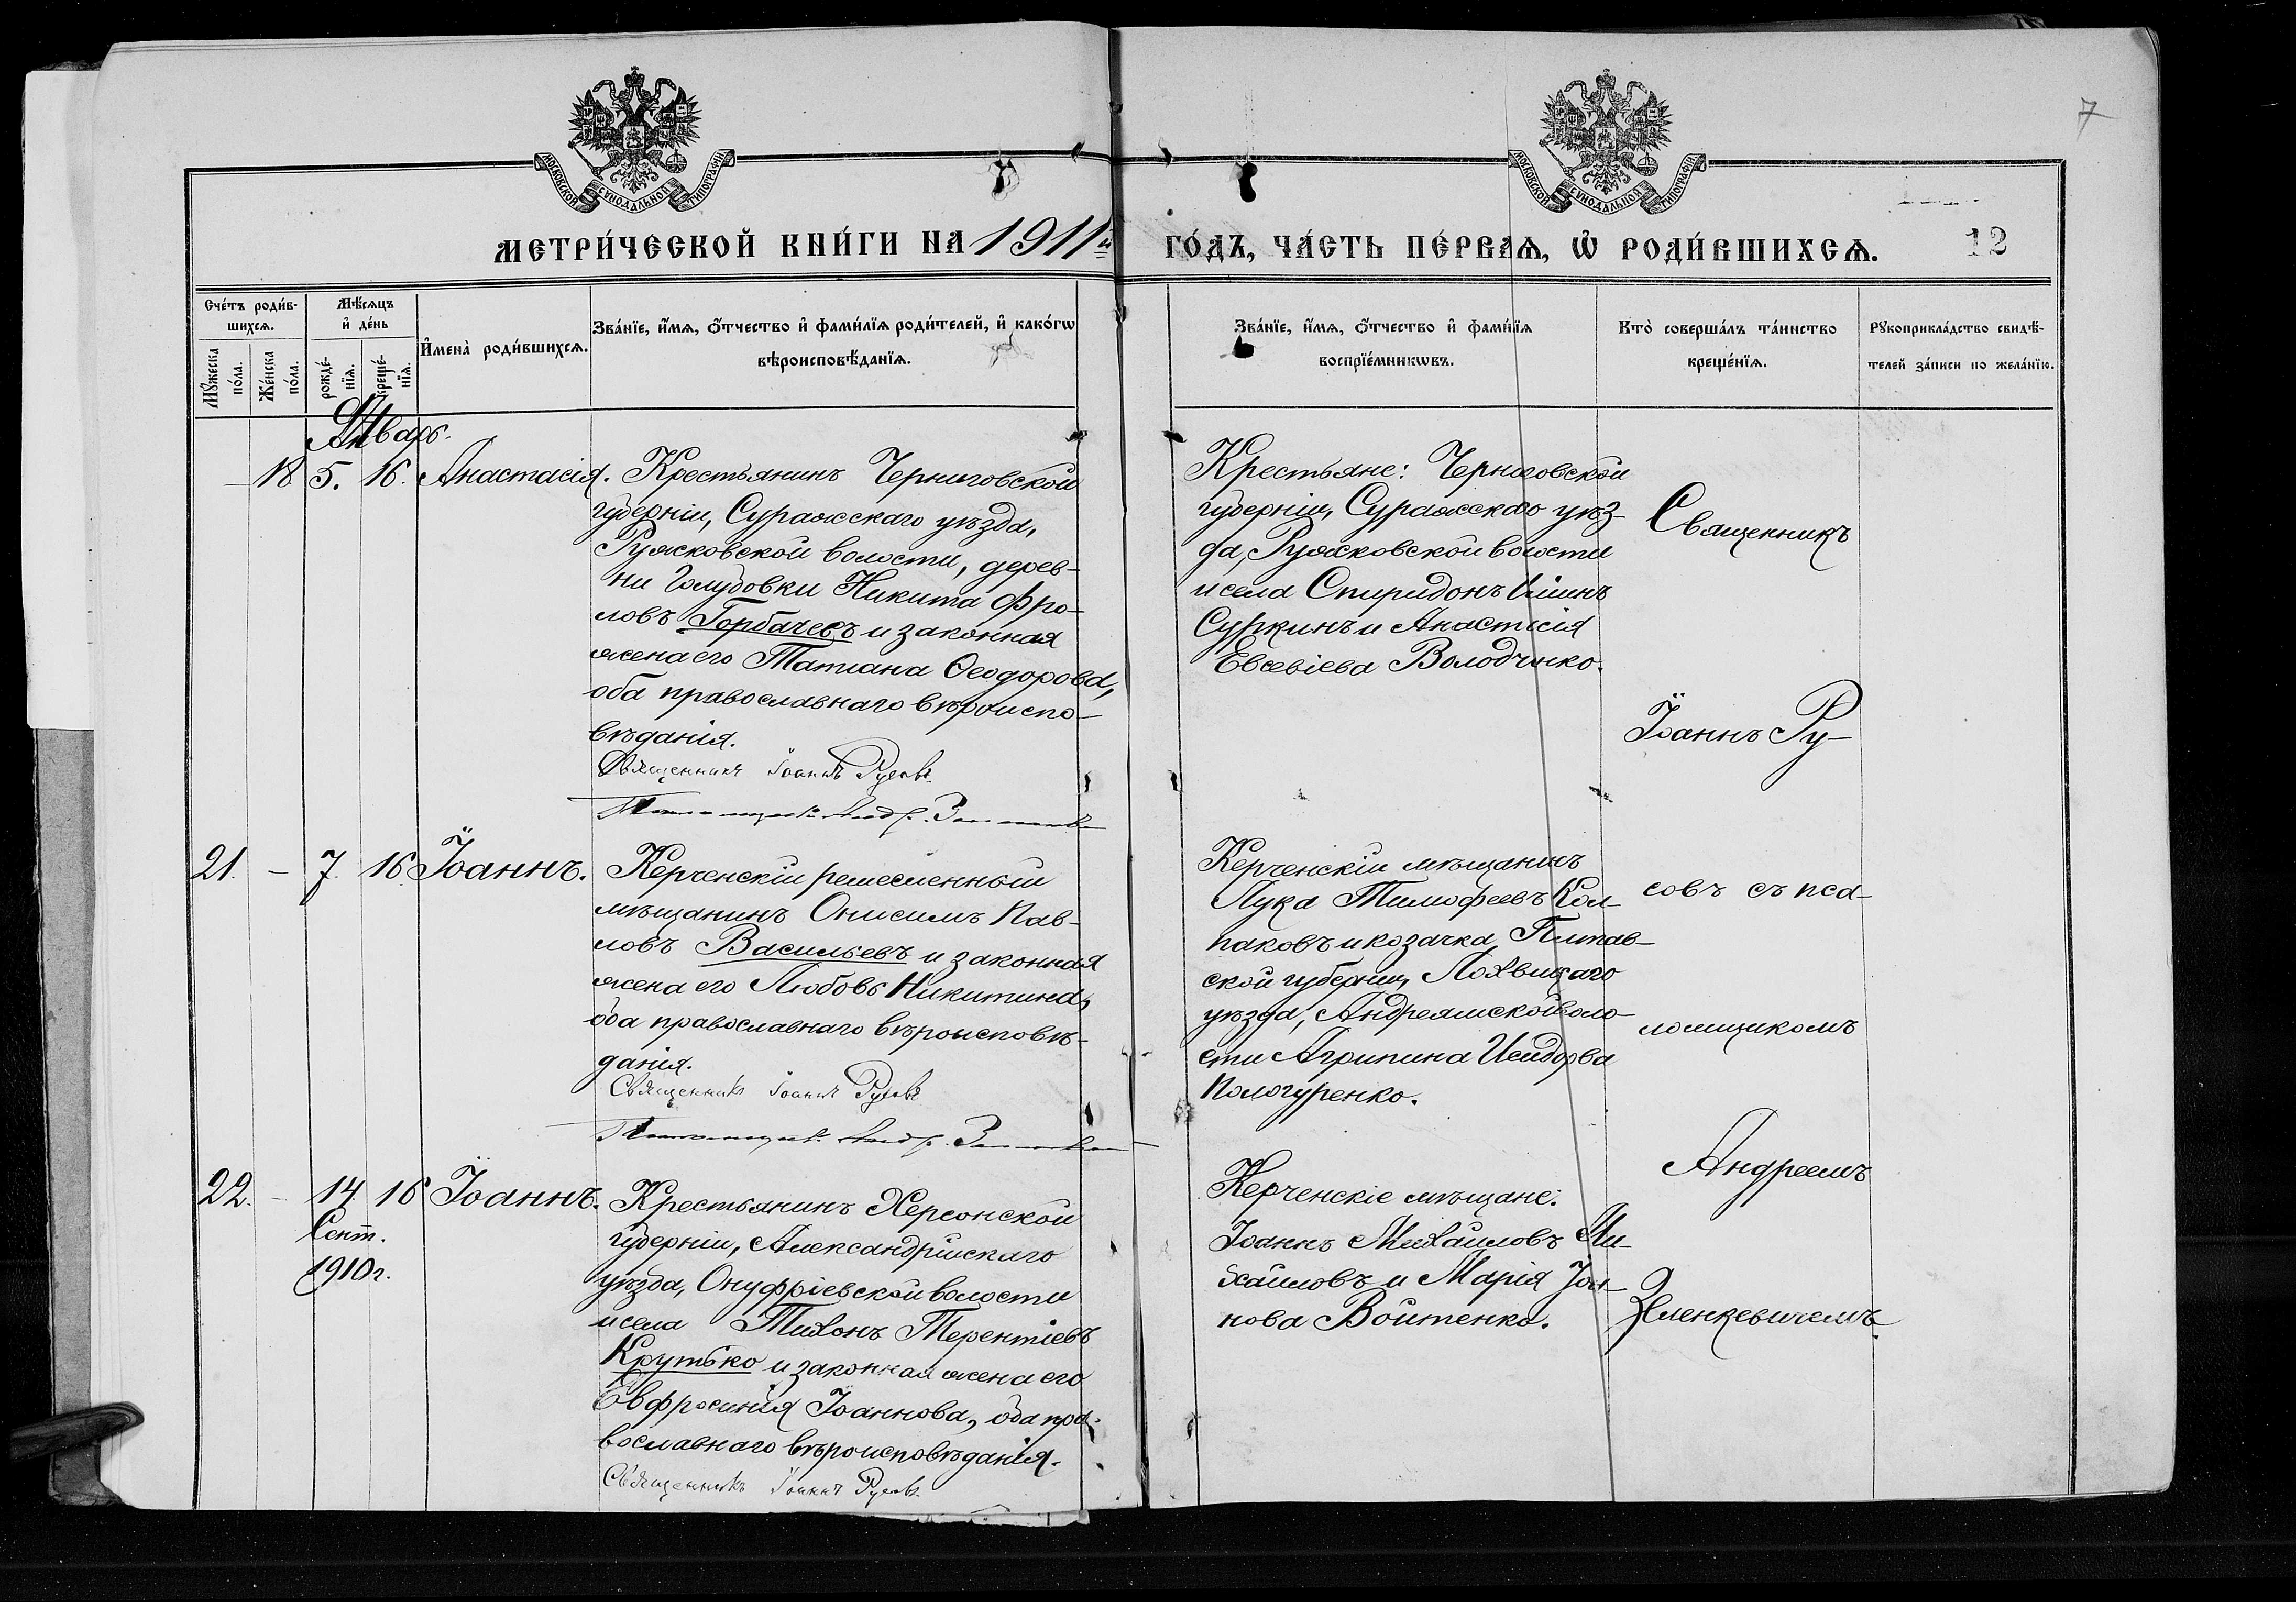 7
МОСКОВСКОЙ СѴНОДАЛЬНОЙ ТИПОГРАФІИ
МОСКОВСКОЙ СѴНОДАЛЬНОЙ ТИПОГРАФІИ
МЕТРИ́ЧЕСКОЙ КНИ́ГИ НА 1911й
ГО́ДЪ, ЧА́СТЬ ПЕ́РВАѦ, Ѡ҆ РОДИ́ВШИХСѦ.
12
Счéтъ роди́в-
шихсѧ.
Мꙋ́жеска по́ла.
Же́нска по́ла.
Мѣ́сѧцъ
и҆ де́нь
рожде́-
нїѧ.
креще́-
нїѧ.
И҆мена̀ роди́вшихсѧ.
Зва́нїе, и҆́мѧ, ѻ҆́тчество и҆ фами́лїѧ роди́телей, и҆ како́гѡ
вѣроисповѣ́данїѧ.
Зва́нїе, и҆́мѧ, ѻ҆́тчество и҆ фами́лїѧ
воспрїе́мникѡвъ.
Кто̀ соверша́лъ та́инство
креще́нїѧ.
Рꙋкоприкла́дство свидѣ́-
телей за́писи по жела́нїю.
Январь.
18 5. 16. Анастасія.
Крестьянинъ Черниговской
губерніи, Суражскаго уѣзда,
Ружковской волости, дерев-
ни Голубовки Никита Фро-
ловъ Горбачевъ и законная
жена его Татіана Ѳеодорова,
оба православнаго вѣроиспо-
вѣданія.
Священникъ Іоаннъ Русовъ
Псаломщикъ Андр.
Крестьяне: Черниговской
губерніи, Суражскаго уѣз-
да, Ружковской волости
и села Спиридонъ
Суркинъ и Анастасія
Евсевіева Володченко.
21. – 7. 16. Іоаннъ.
Керченскій ремесленный
мѣщанинъ Онисимъ Пав-
ловъ Васильевъ и законная
жена его Любовь Никитина,
оба православнаго вѣроисповѣ-
данія.
Священникъ Іоаннъ Русовъ
Псаломщикъ Андр.
Керченскій мѣщанинъ
Лука Тимофеевъ Кол-
паковъ и козачка Полтав-
ской губерніи, Лохвицкаго
уѣзда, Андреяшской воло-
сти Агрипина Исидорова
Пологуренко.
22. – 14 16 Іоаннъ.
Сент.
1910г.
Крестьянинъ Херсонской
губерніи, Александрійскаго
уѣзда, Онуфріевской волости
и села Тихонъ Терентіевъ
Крутько и законная жена его
Евфросинія Іоаннова, оба пра-
вославнаго вѣроисповѣданія.
Священникъ Іоаннъ Русовъ
Керченскіе мѣщане:
Іоаннъ Михайловъ Ми-
хайловъ и Марія Іоан-
нова Войтенко.
Священникъ
Іоаннъ Ру-
совъ съ пса-
ломщикомъ
Андреемъ
Зеленкевичемъ.